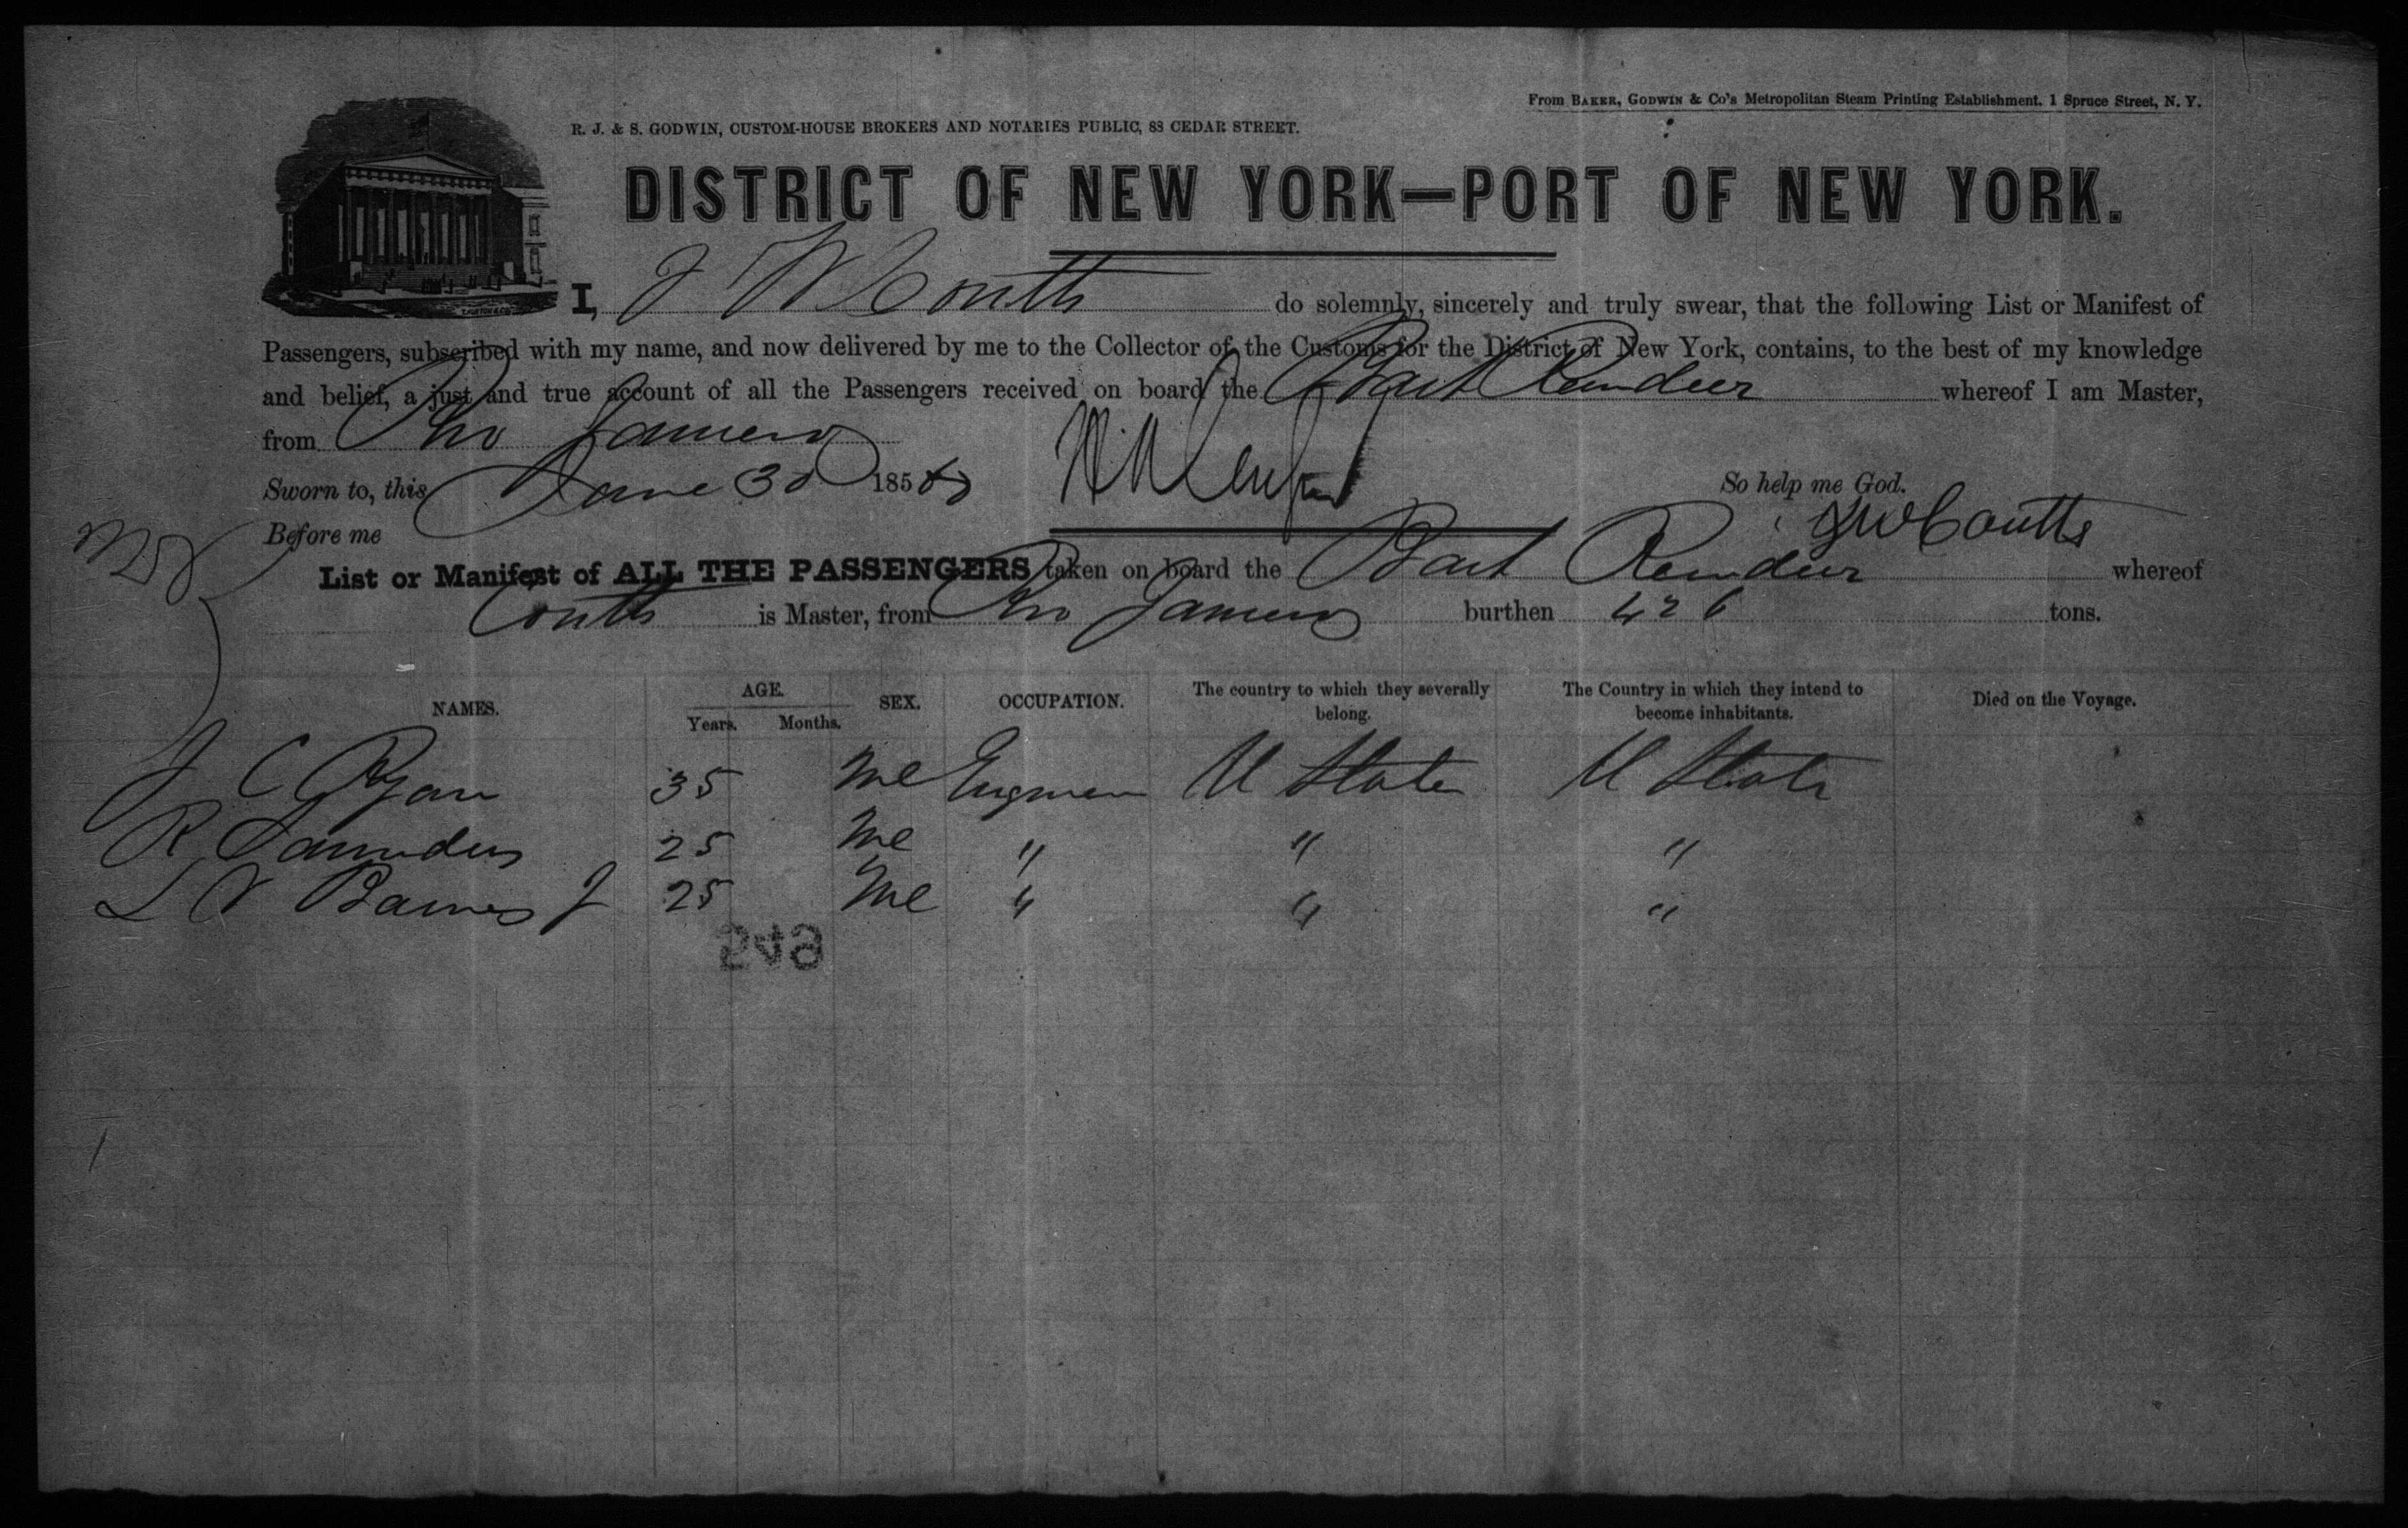 From BAKER, GODWIN & Co's Metropolitan Steam Printing Establishment, 1 Spruce Street, N. Y.
R. J. & S. GODWIN, CUSTOM-HOUSE BROKERS AND NOTARIES PUBLIC, 83 CEDAR STREET.
DISTRICT OF NEW YORK—PORT OF NEW YORK.
I, J W Coutts do solemnly, sincerely and truly swear, that the following List or Manifest of
Passengers, subscribed with my name, and now delivered by me to the Collector of the Customs for the District of New York, contains, to the best of my knowledge
and belief, a just and true account of all the Passengers received on board the Bark Reindeer whereof I am Master,
from Rio Janeiro
Sworn to, this June 3d 185
So help me God.
Before me
J W Coutts
List or Manifest of ALL THE PASSENGERS taken on board the Bark Reindeer whereof
Coutts is Master, from Rio Janeiro burthen 426 tons.
NAMES. AGE. Years. Months. SEX. OCCUPATION. The country to which they severally belong. The Country in which they intend to become inhabitants. Died on the Voyage.
J C Ryan 35 Me U State U State
R Saunders 25 Me " " "
L V Barnes J 25 Me " " "